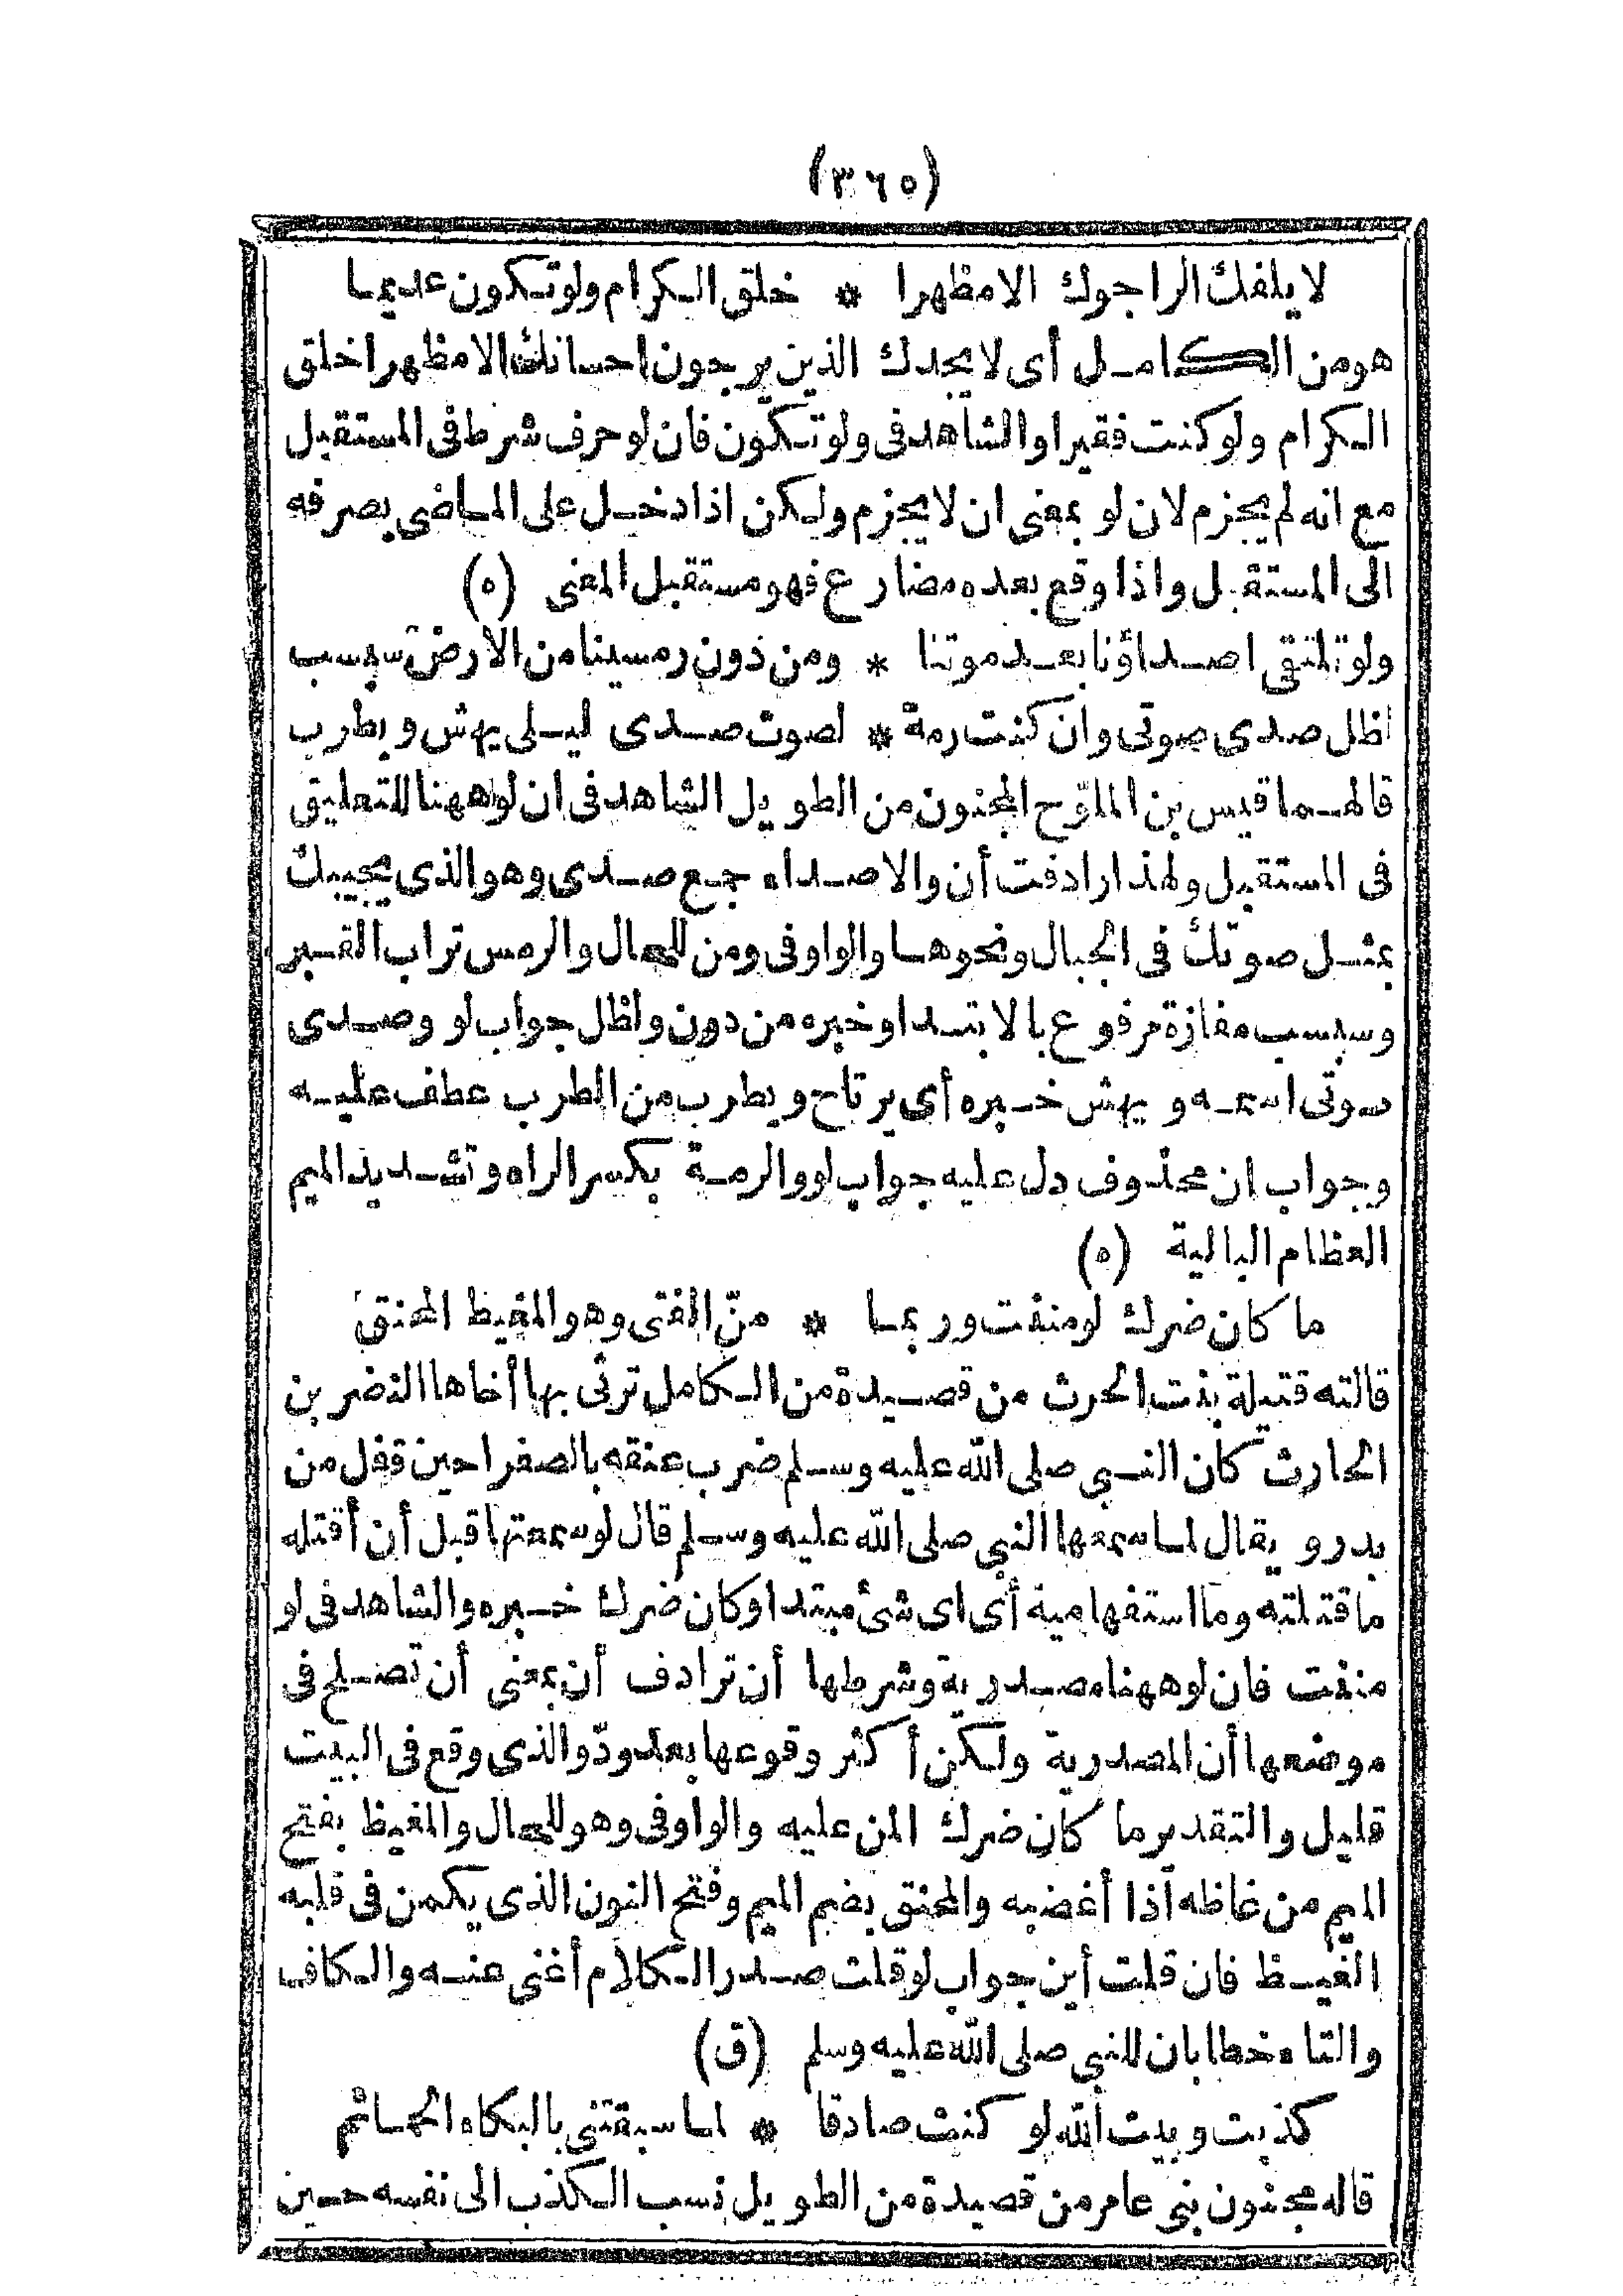 (٣٦٥)
لا يلفك الراجوك الا مظهرا * خلق الكرام ولو تكون عديما
هو من الكامل أى لا يجدك الذين يرجون احسانك الا مظهرا خلق
الكرام ولو كنت فقيرا والشاهد فى ولو تكون فان لو حرف شرط فى المستقبل
مع انه لم يجزم لان لو بمعنى ان لا يجزم ولكن اذا دخل على الماضى يصرفه
الى المستقبل واذا وقع بعده مضارع فهو مستقبل المعنى (ه)
ولو تلتقى اصداؤنا بعد موتنا * ومن دون رمسينا من الارض سبسب
لظل صدى صوتى وان كنت رمة * لصوت صدى ليلى يهش ويطرب
قالهما قيس بن الملوّح المجنون من الطويل الشاهد فى ان لو ههنا للتعليق
فى المستقبل ولهذا رادفت أن والاصداء جمع صدى وهو الذى يجيبك
بمثل صوتك فى الجبال ونحوها والواو فى ومن للحال والرمس تراب القبر
وسبسب مفازة مرفوع بالابتدا وخبره من دون ولظل جواب لو وصدى
صوتى اسمه ويهش خبره أى يرتاح ويطرب من الطرب عطف عليه
وجواب ان محذوف دل عليه جواب لو والرمة بكسر الراء وتشديد الميم
العظام البالية (ه)
ما كان ضرك لو مننت وربما * منّ الفتى وهو المغيظ المحنق
قالته قتيلة بنت الحرث من قصيدة من الكامل ترثى بها أخاها النضر بن
الحارث كان النبى صلى الله عليه وسلم ضرب عنقه بالصفرا حين قفل من
بدر ويقال لما سمعها النبى صلى الله عليه وسلم قال لو سمعتها قبل أن أقتله
ما قتلته وما استفهامية أى اى شئ مبتدا وكان ضرك خبره والشاهد فى لو
مننت فان لو ههنا مصدرية وشرطها أن ترادف أن بمعنى أن تصلح فى
موضعها أن المصدرية ولكن أكثر وقوعها بعد ودّ والذى وقع فى البيت
قليل والتقدير ما كان ضرك المن عليه والواو فى وهو للحال والمغيظ بفتح
الميم من غاظه اذا أغضبه والمحنق بضم الميم وفتح النون الذى يكمن فى قلبه
الغيظ فان قلت أين جواب لو قلت صدر الكلام أغنى عنه والكاف
والتاء خطابان للنبى صلى الله عليه وسلم (ق)
كذبت وبيت الله لو كنت صادقا * لما سبقتنى بالبكاء الحمائم
قاله مجنون بنى عامر من قصيدة من الطويل نسب الكذب الى نفسه حين